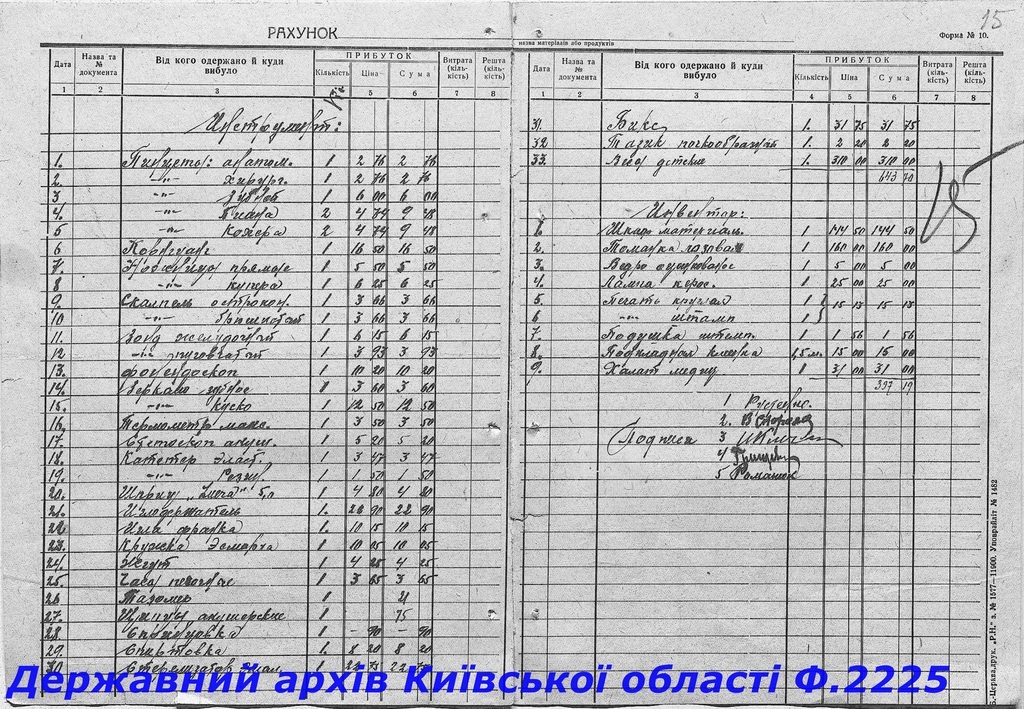 15
РАХУНОК
назва матеріалів або продуктів
Форма № 10.
Дата Назва та № документа Від кого одержано й куди вибуло ПРИБУТОК Кількість Ціна Сума Витрата (кількість) Решта (кількість)
1 2 3 5 6 7 8
Инструмент:
1. Пинцеты: анатом. 1 2 76 2 76
2. -"- хирург. 1 2 76 2 76
3 -"- зубной 1 6 00 6 00
4. -"- Пеана 2 4 74 9 48
5 -"- Кохера 2 4 74 9 48
6 Корнцанг 1 16 50 16 50
7. Ножницы прямые 1 5 50 5 50
8 -"- купера 1 6 25 6 25
9. Скальпель острокон. 1 3 66 3 66
10 -"- брюшистый 1 3 66 3 66
11. Зонд желудочный 1 6 15 6 15
12 -"- пуговчатый 1 3 93 3 93
13. фонендоскоп 1 10 20 10 20
14. Зеркало зубное 1 3 60 3 60
15. -"- куско 1 12 50 12 50
16. Термометр макс. 1 3 50 3 50
17. Стетоскоп акуш. 1 5 20 5 20
18. Катетер эласт. 1 3 47 3 47
19. -"- резин. 1 1 50 1 50
20. Шприц 1 4 80 4 80
21. Иглодержатель 1. 22 90 22 90
22. Игла франка 1 10 15 10 15
23. Кружка Эсмарха 1 10 05 10 05
24. Жгут 1 4 25 4 25
25. Часы песочные 1 3 65 3 65
26 Тазомер 1 21
27. Щипцы акушерские 1 75
28. Спринцовка 1 - 90 - 90
29. Спиртовка 1. 8 20 8 20
30 1 22 75 22 75
Дата Назва та № документа Від кого одержано й куди вибуло ПРИБУТОК Кількість Ціна Сума Витрата (кількість) Решта (кількість)
1 2 3 4 5 6 7 8
31. Бикс 1. 31 75 31 75
32 Тазик почкообразный 1. 2 20 2 20
33. Весы детские 1. 310 00 310 00
643 70
Инвентар:
1. Шкаф материаль. 1 144 50 144 50
2. 1 160 00 160 00
3. Ведро 1 5 00 5 00
4. Лампа керос. 1 25 00 25 00
5. Печать круглая 1 15 13 15 13
6 -"- штамп 1
7. Подушка штемп. 1 1 56 1 56
8. Подкладная клеенка 1,5 м. 15 00 15 00
9. Халат медиц 1 31 00 31 00
397 19
1
2.
Подписи 3
4
5 Романюк
Б.-Церква, друк. „Р.Н." з. № 1577—11000. Уповрайліт № 1482
Державний архів Київської області Ф.2225